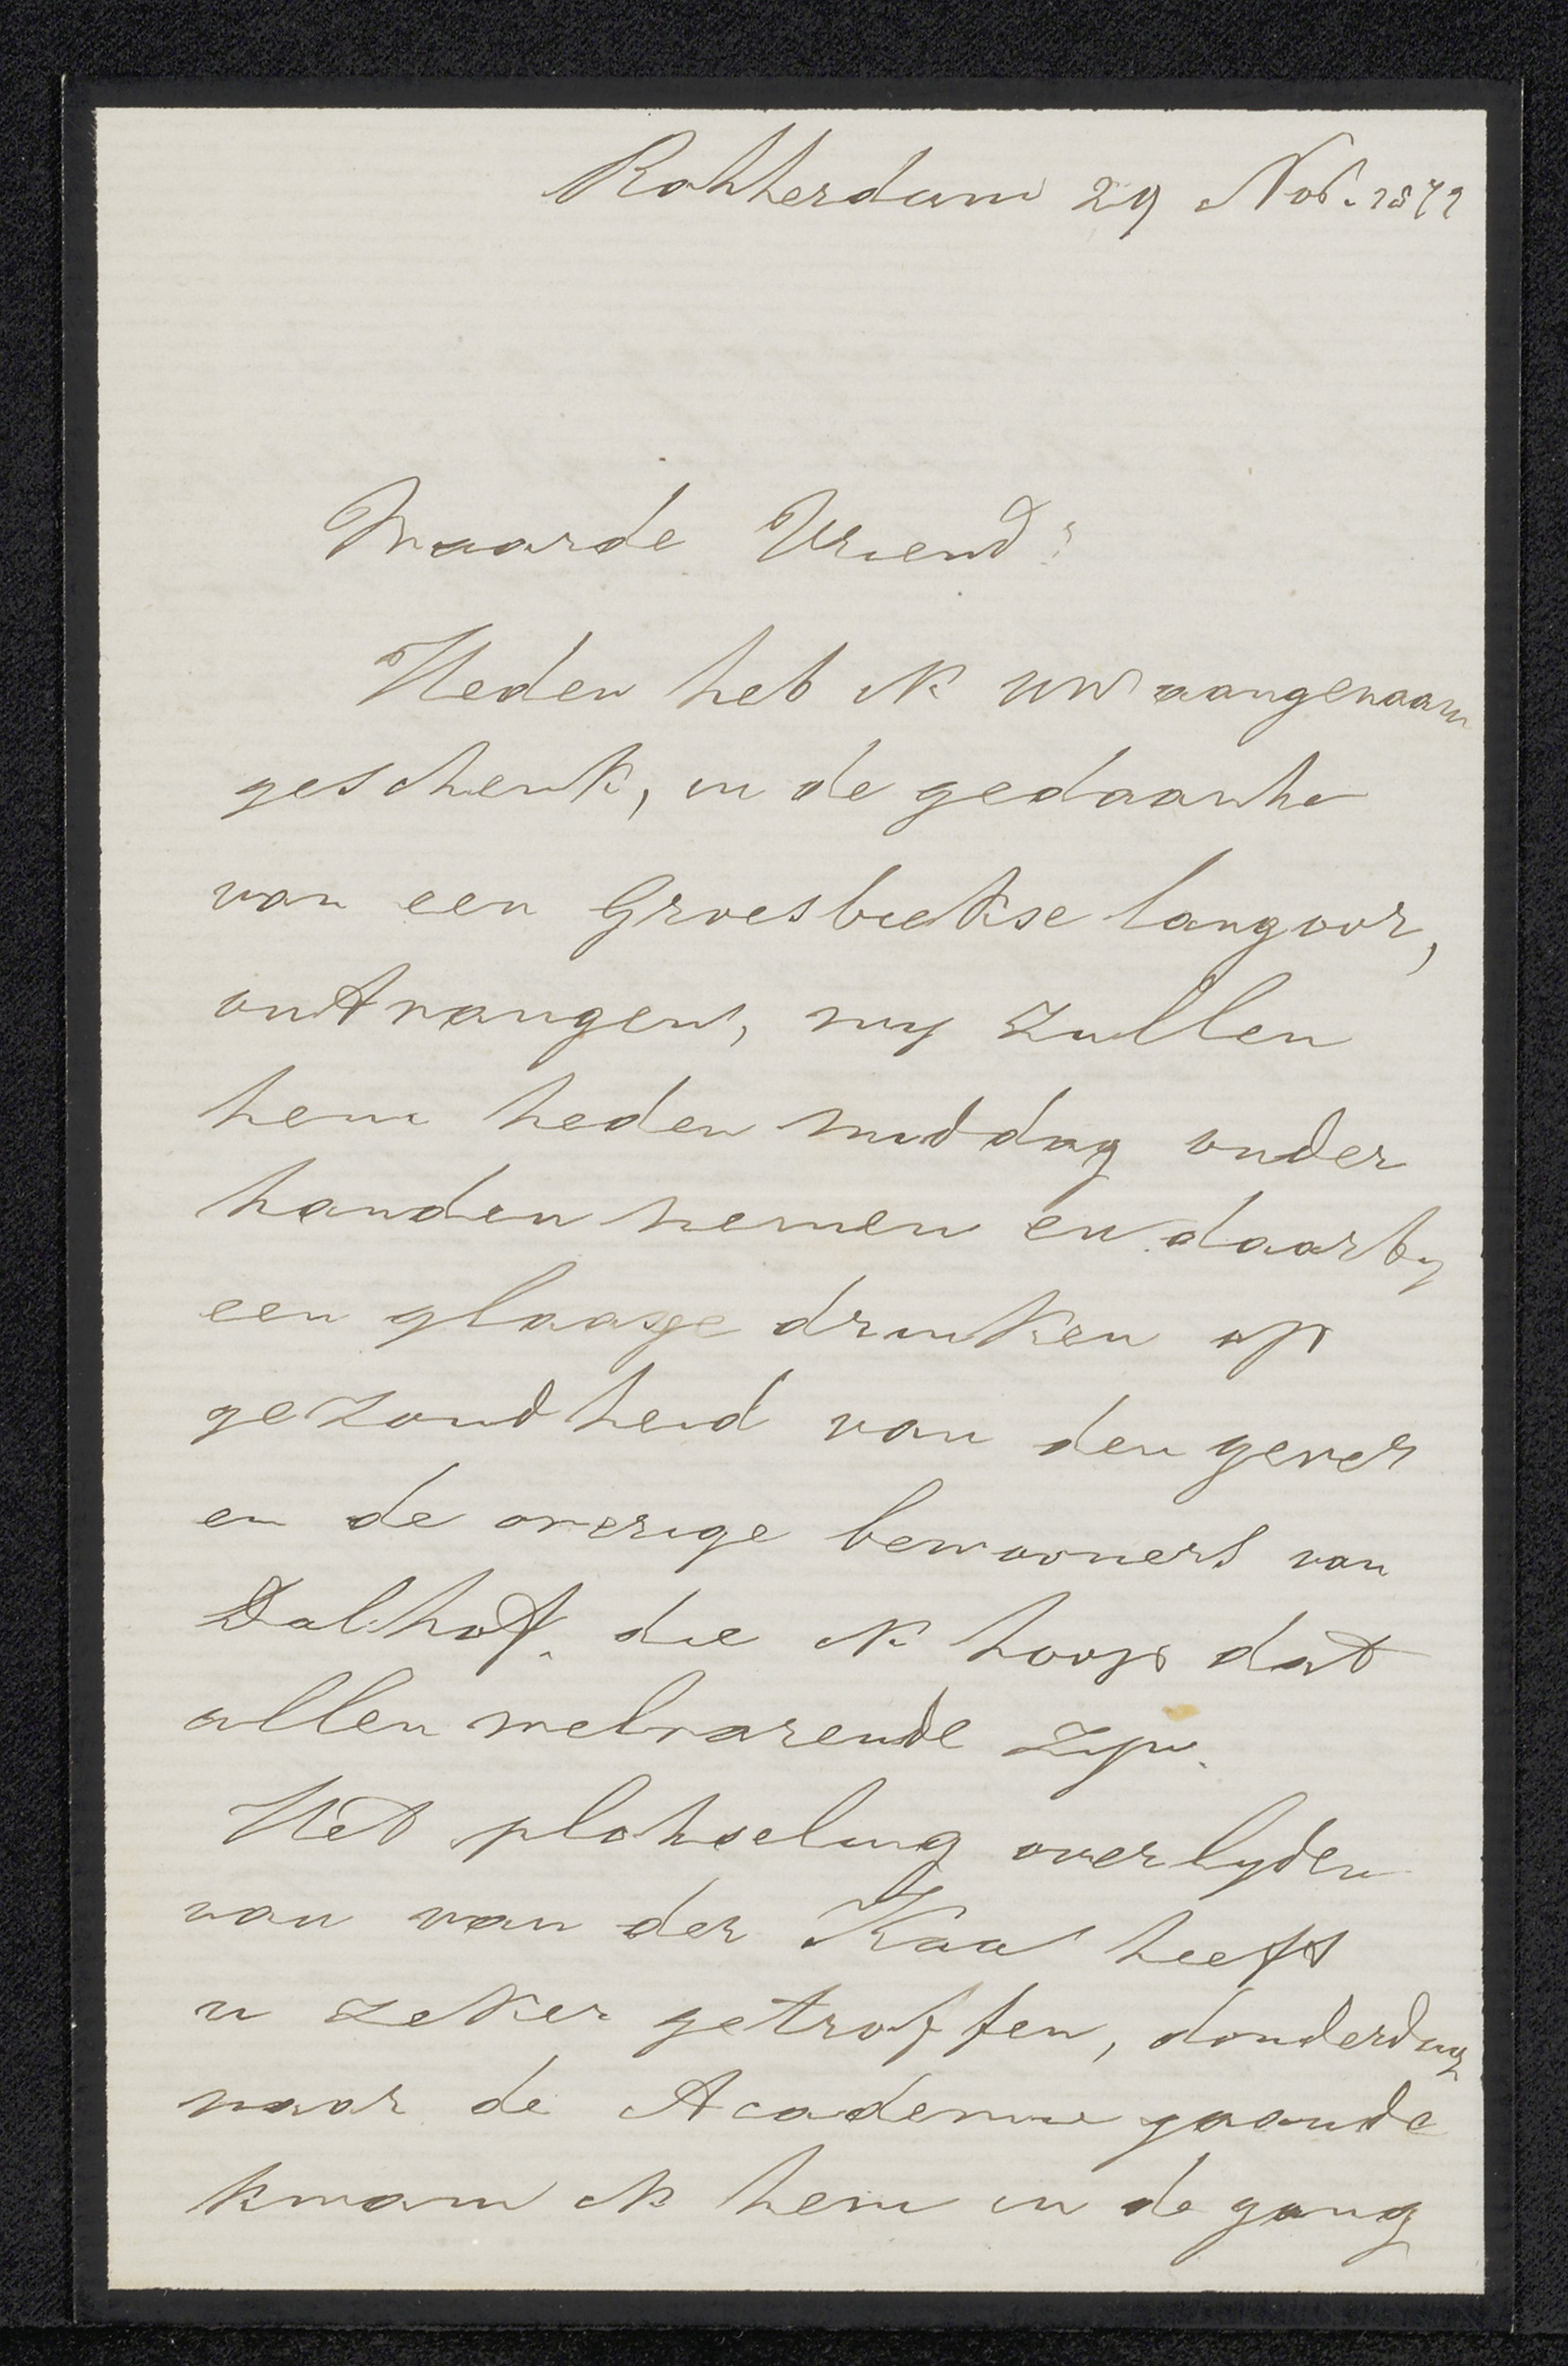 Rotterdam 29 Nov. 1879
Waarde Vriend!
Heden heb ik uw aangenaam
geschenk, in de gedaante
van een Groesbeekse langoor,
ontvangen, wy zullen
hem heden middag onder
handen nemen en daarby
een glaasje drinken op
gezondheid van den gever
en de overige bewooners van
Dalhof. die ik hoop dat
allen welvarende zyn.
Het plotseling overlyden
van van der Kaa heeft
u zeker getroffen, donderdag
naar de Academie gaande
kwam ik hem in de gang